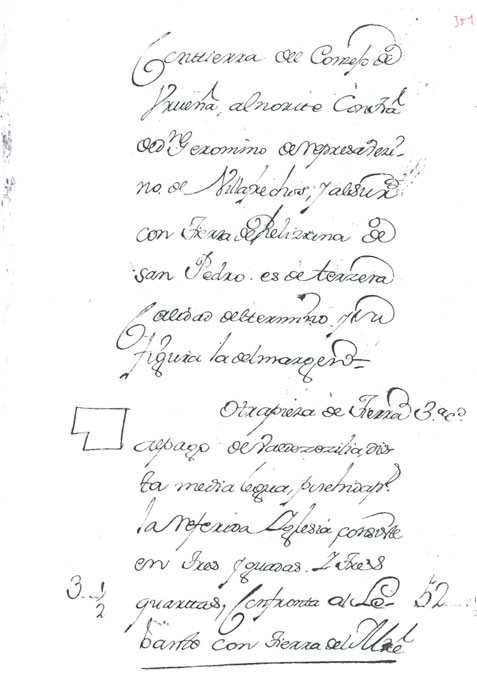 301
Con tierra del Conzejo de
Vrueña, al norte Con tra.
de Dn Geronimo de represa vezi-
no de Villafrechos, y al sur
con tierra de Felix mina de
San Pedro. es de terzera
Calidad del termino. y su
figura la del margen=
Otra pieza de tierra 3.a c.
al pago de Valdozozilia, dis
ta media legua,
la referida Yglesia, consiste
en tres Yguadas. Y tres
quartas, Confronta al Le-
3 1/2
52
bante con tierra del